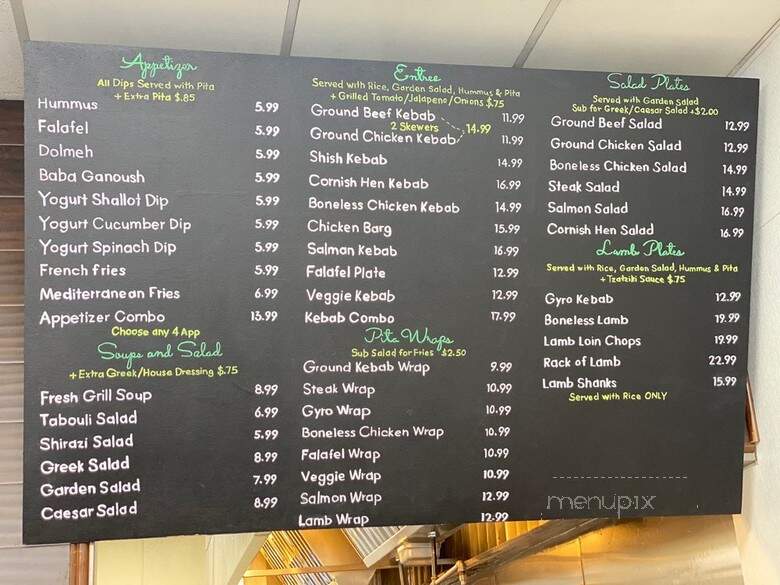 Appetizer
All Dips Served with Pita
+ Extra Pita $.85
Hummus 5.99
Falafel 5.99
Dolmeh 5.99
Baba Ganoush 5.99
Yogurt Shallot Dip 5.99
Yogurt Cucumber Dip 5.99
Yogurt Spinach Dip 5.99
French fries 5.99
Mediterranean Fries 6.99
Appetizer Combo 15.99
Choose any 4 App
Soups and Salad
+ Extra Greek/House Dressing $.75
Fresh Grill Soup 8.99
Tabouli Salad 6.99
Shirazi Salad 5.99
Greek Salad 8.99
Garden Salad 7.99
Caesar Salad 8.99
Entree
Served with Rice, Garden Salad, Hummus & Pita
+ Grilled Tomato/Jalapeno/Onions $.75
Ground Beef Kebab 11.99
2 Skewers 14.99
Ground Chicken Kebab 11.99
Shish Kebab 14.99
Cornish Hen Kebab 16.99
Boneless Chicken Kebab 14.99
Chicken Barg 15.99
Salman Kebab 16.99
Falafel Plate 12.99
Veggie Kebab 12.99
Kebab Combo 17.99
Pita Wraps
Sub Salad for Fries +$2.50
Ground Kebab Wrap 9.99
Steak Wrap 10.99
Gyro Wrap 10.99
Boneless Chicken Wrap 10.99
Falafel Wrap 10.99
Veggie Wrap 10.99
Salmon Wrap 12.99
Lamb Wrap 12.99
Salad Plates
Served with Garden Salad
Sub for Greek/Caesar Salad +$2.00
Ground Beef Salad 12.99
Ground Chicken Salad 12.99
Boneless Chicken Salad 14.99
Steak Salad 14.99
Salmon Salad 16.99
Cornish Hen Salad 16.99
Lamb Plates
Served with Rice, Garden Salad, Hummus & Pita
+ Tzatziki Sauce $.75
Gyro Kebab 12.99
Boneless Lamb 19.99
Lamb Loin Chops 19.99
Rack of Lamb 22.99
Lamb Shanks 15.99
Served with Rice ONLY
menupix